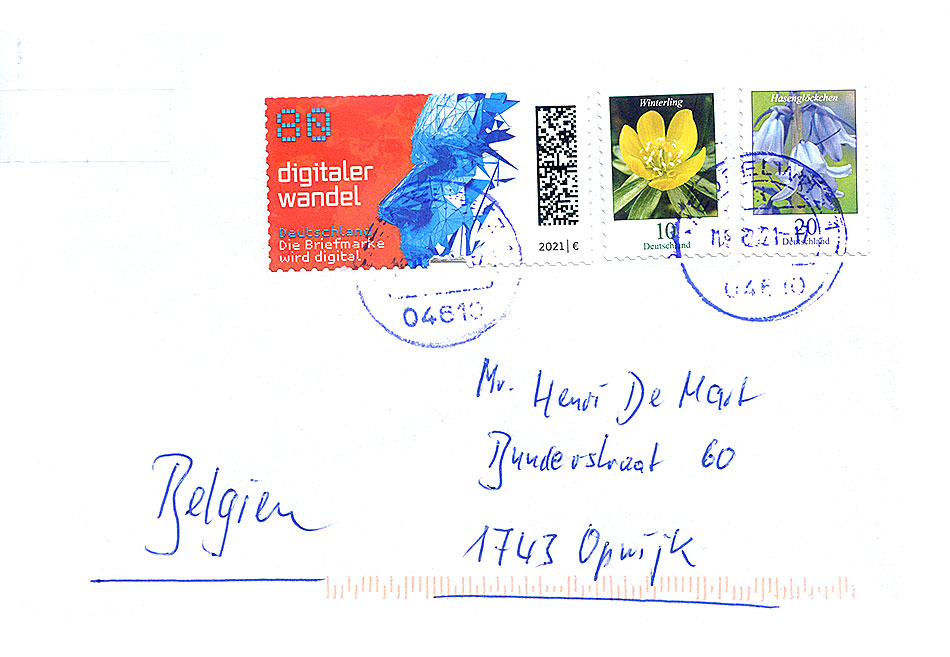 80
digitaler
wandel
Deutschland
Die Briefmarke
wird digital
2021|€
Winterling
10
Deutschland
Hasenglöckchen
20
Deutschland
04610
04610
Mr. Henri De Mart
Bunderstraat 60
1743 Opwijk
Belgien